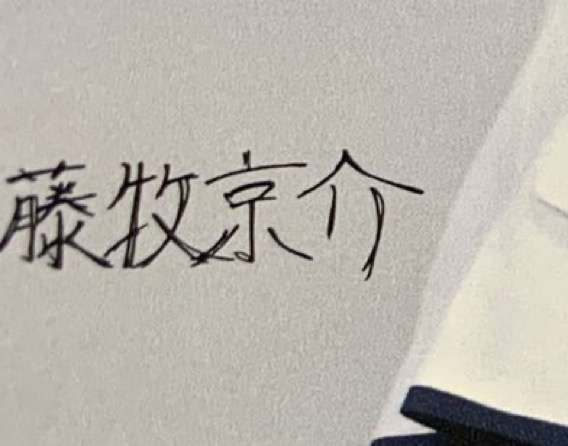 藤牧京介